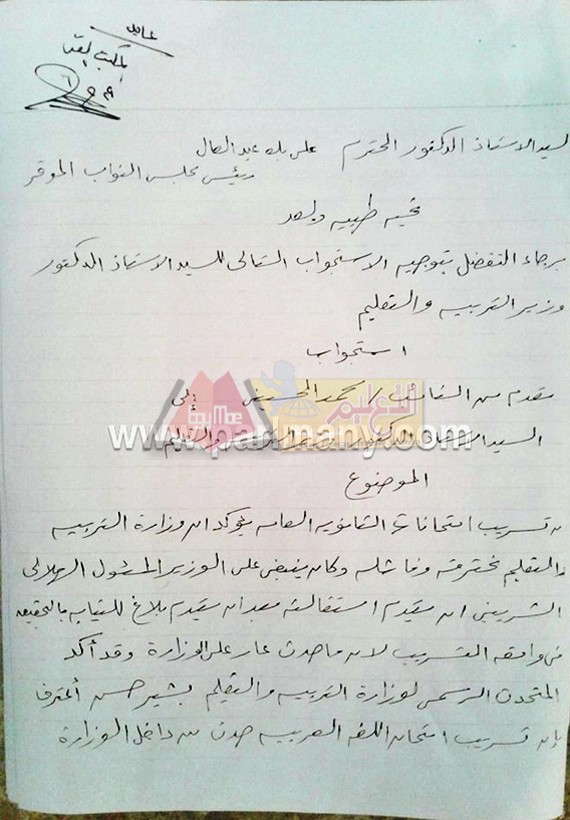 عاجل
السيد الاستاذ الدكتور المحترم على عبد العال
رئيس مجلس النواب الموقر
تحيه طيبه وبعد
برجاء التفضل بتوجيه الاستجواب التالى للسيد الاستاذ الدكتور
وزير التربيه والتعليم
استجواب
مقدم من النائب / محمد الحسينى إلى
السيد الاستاذ الدكتور وزير التربيه والتعليم
www.parlmany.com
الموضوع
ان تسريب امتحانات الثانويه العامه يؤكد ان وزارة التربيه
والتعليم مخترقه وفاشله وكان ينبغى على الوزير المسئول الهلالى
الشربينى ان يقدم استقالته بعد ان يتقدم بلاغ للنيابه بالتحقيق
فى واقعه التسريب لان ما حدث عار على الوزارة وقد أكد
المتحدث الرسمى لوزارة التربيه والتعليم بشير حسن أعترف
بإن تسريب امتحان اللغه العربيه حدث من داخل الوزارة